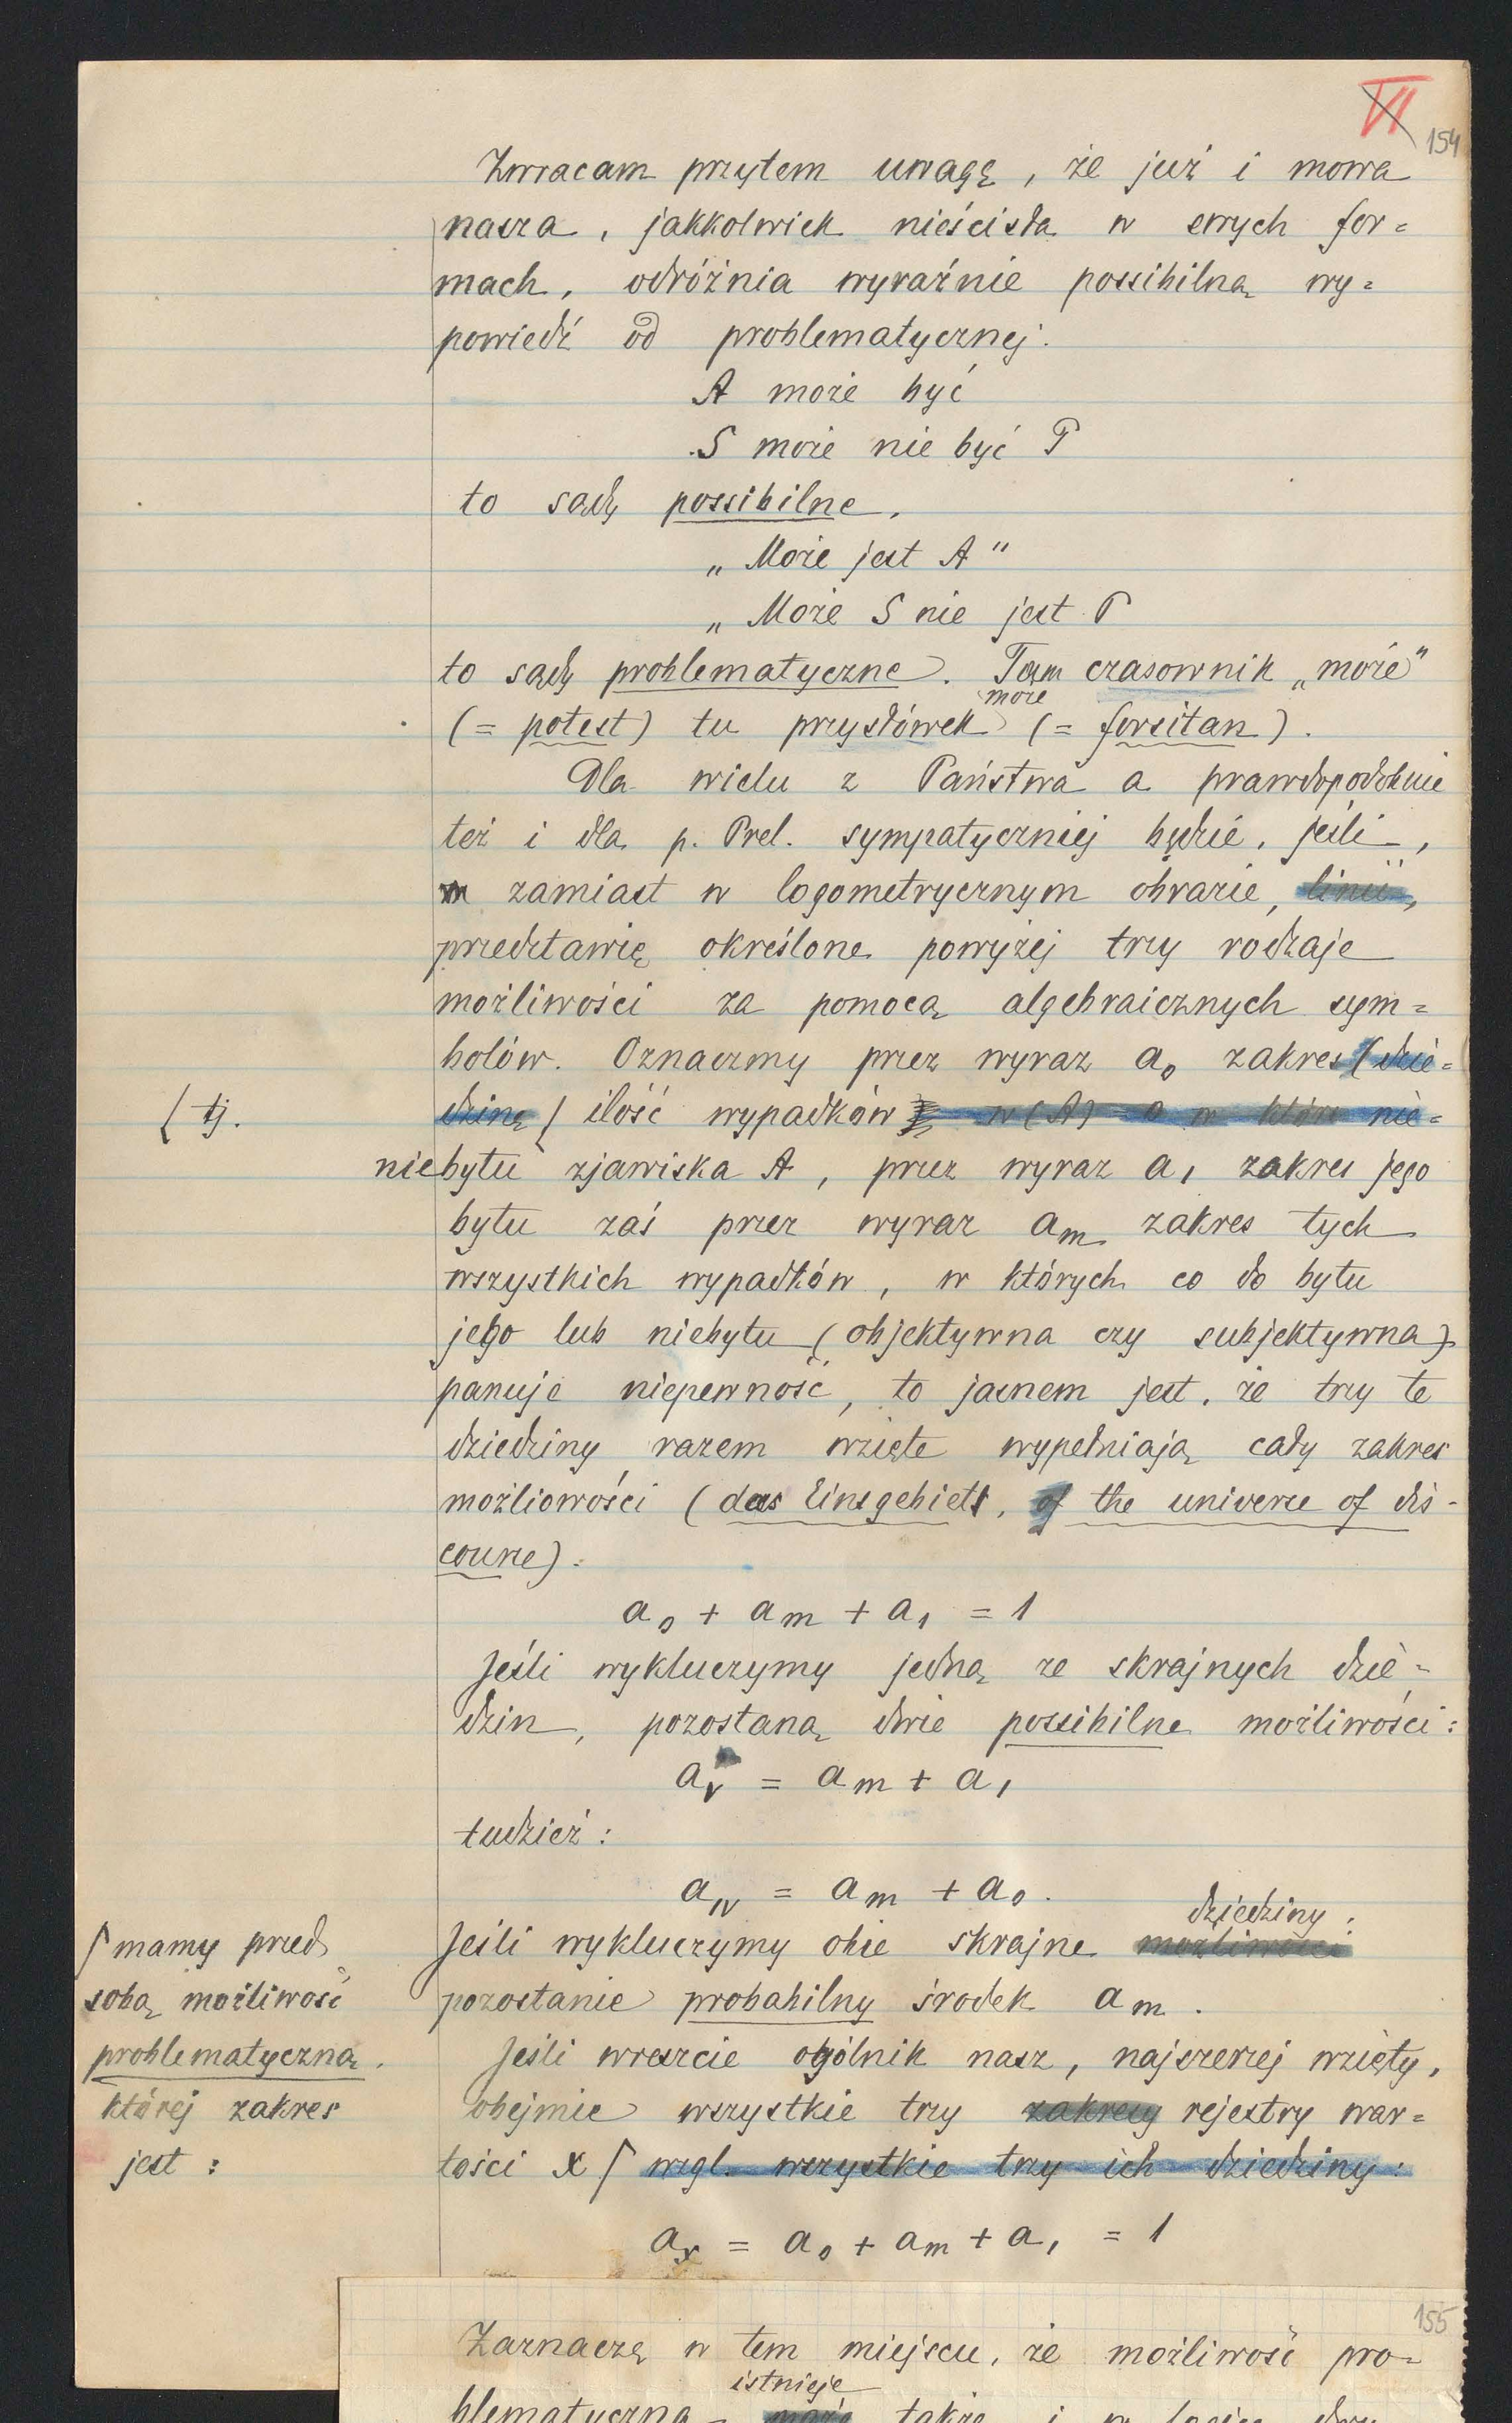 VI
154
Zwracam przytem uwagę, że już i mowa
nasza, jakkolwiek nieścisła w swych for=
mach, odróżnia wyraźnie possibilną wy=
powiedź od problematycznej.
A może być
S może nie być P
to sądy possibilne,
„Może jest A"
„Może S nie jest P
to sądy problematyczne. Tam czasownik „może"
może
(= potest) tu przysłówek (= forsitan).
Dla wielu z Państwa a prawdopodobnie
też i dla p. Prel. sympatyczniej będzie, jeśli,
zamiast w logometrycznym obrazie, linii,
przedstawię określone powyżej trzy rodzaje
możliwości za pomocą algebraicznych sym=
bolów. Oznaczmy przez wyraz a₀ zakres (dzie=
[ tj.
dzinę / ilość wypadków w (A) o w które nie=
niebytu zjawiska A, przez wyraz a₁ zakres jego
bytu zaś przez wyraz aₘ zakres tych
wszystkich wypadków, w których co do bytu
jego lub niebytu (objektywna czy subjektywna)
panuje niepewność, to jasnem jest, że trzy te
dziedziny razem wzięte wypełniają cały zakres
możliowości (das Einsgebiet, of the universe of dis-
course).
a₀ + aₘ + a₁ = 1
Jeśli wykluczymy jedną ze skrajnych dzie=
dzin, pozostaną dwie possibilne możliwości:
aᵥ = aₘ + a₁
tudzież:
a₁ᵥ = aₘ + a₀.
dziedziny,
Jeśli wykluczymy obie skrajne możliwości
pozostanie probabilny środek aₘ.
⌈ mamy przed
sobą możliwość
problematyczną,
której zakres
jest:
Jeśli wreszcie ogólnik nasz, najszerzej wzięty,
obejmie wszystkie trzy zakresy rejestry war=
tości x ⌈ wzgl. wszystkie trzy ich dziedziny:
aₓ = a₀ + aₘ + a₁ = 1
155
Zaznaczę w tem miejscu, że możliwość pro=
istnieje
blematyczna także i w logice dwu